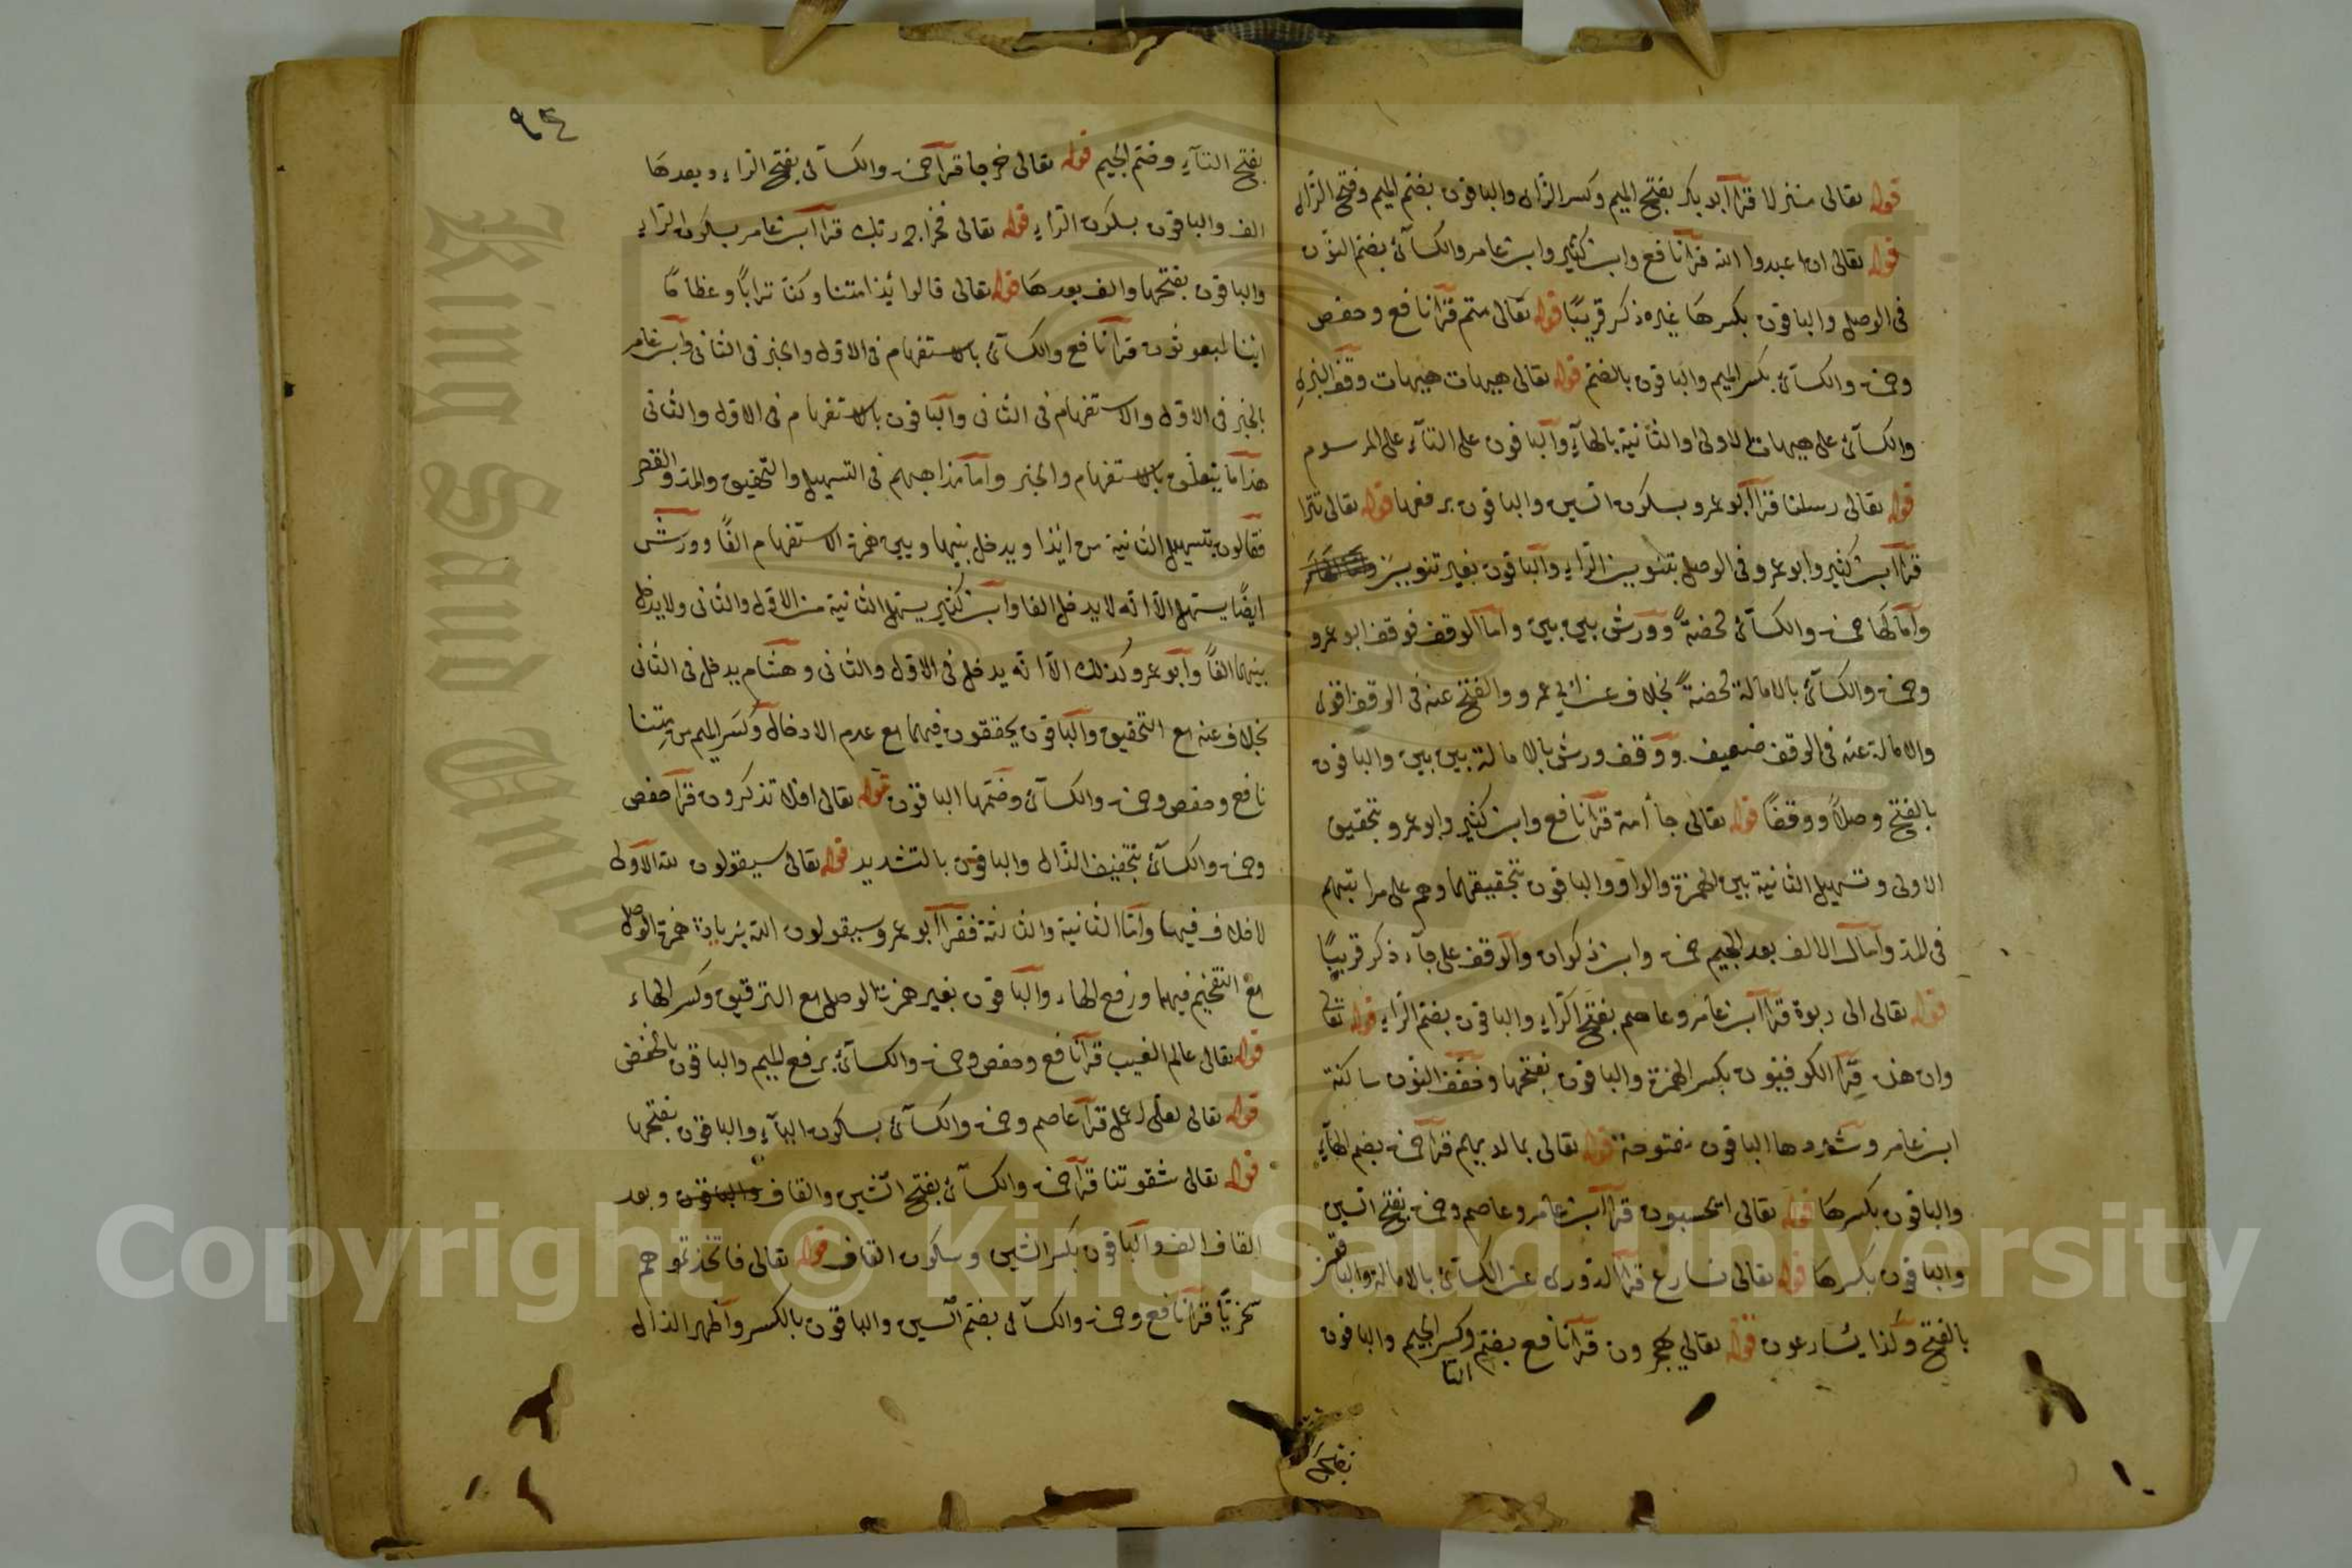 قوله تعالى منزلا قرأ أبو بكر بفتح الميم وكسر الزاى والباقون بضم الميم وفتح الزاى
قوله تعالى ان اعبدوا الله قرأ نافع وابن كثير وابن عامر والكسآئى بضم النون
فى الوصل والباقون بكسرها غيره ذكر قريبًا قوله تعالى متم قرأ نافع وحفص
وحمزة والكسآئى بكسر الميم والباقون بالضم قوله تعالى هيهات هيهات وقف البزى
والكسآئى على هيهات الاولى او الثانية بالهآء والباقون على التآء على المرسوم
قوله تعالى رسلنا قرأ أبو عمرو بسكون السين والباقون برفعها قوله تعالى تترا
قرأ ابن كثير وابو عمرو فى الوصل بتنوين الرآء والباقون بغير تنوين
وأمالها حمزة والكسآئى محضةً وورش بين بين وأما الوقف فوقف ابو عمرو
وحمزة والكسآئى بالامالة محضةً بخلاف عن ابى عمرو والفتح عنه فى الوقف اقوى
والامالة عنه فى الوقف ضعيف ووقف ورش بالامالة بين بين والباقون
بالفتح وصلاً ووقفًا قوله تعالى جآ أمة قرأ نافع وابن كثير وابو عمرو بتحقيق
الاولى وتسهيل الثانية بين الهمزة والواو والباقون بتحقيقهما وهم على مراتبهم
فى المد وأمال الالف بعد الجيم حمزة وابن ذكوان والوقف على جآء ذكر قريبًا
قوله تعالى الى ربوة قرأ ابن عامر وعاصم بفتح الرآء والباقون بضم الرآء قوله تعالى
وان هذه قرأ الكوفيون بكسر الهمزة والباقون بفتحها وخفف النون ساكنة
ابن عامر وشددها الباقون مفتوحة قوله تعالى بما لديهم قرأ حمزة بضم الهآء
والباقون بكسرها قوله تعالى ايحسبون قرأ ابن عامر وعاصم وحمزة بفتح السين
والباقون بكسرها قوله تعالى نسارع قرأ الدورى عن الكسآئى بالامالة والباقون
بالفتح وكذا يسارعون قوله تعالى تهجرون قرأ نافع بضم التا وكسر الجيم والباقون
بفتح
٩٤
بفتح التآء وضم الجيم قوله تعالى خرجا قرأ حمزة والكسآئى بفتح الرآء وبعدها
الف والباقون بسكون الرآء قوله تعالى فخراج ربك قرأ ابن عامر بسكون الرآء
والباقون بفتحها والف بعدها قوله تعالى قالوا ئذا متنا وكنا ترابًا وعظامًا
اىنا لمبعوثون قرأ نافع والكسآئى بالاستفهام فى الاول والخبر فى الثانى وابن عامر
بالخبر فى الاول والاستفهام فى الثانى والباقون بالاستفهام فى الاول والثانى
هذا ما يتعلق بالاستفهام والخبر وأما مذاهبهم فى التسهيل والتحقيق والمد والقصر
فقالون بتسهيل الثانية من ائذا ويدخل بينها وبين همزة الاستفهام الفًا وورش
ايضًا يسهل الا انه لا يدخل الفا وابن كثير يسهل الثانية من الاول والثانى ولا يدخل
بينهما الفًا وأبو عمرو كذلك الا انه يدخل فى الاول والثانى وهشام يدخل فى الثانى
بخلاف عنه مع التحقيق والباقون يحققون فيهما مع عدم الادخال وكسر الميم من متنا
نافع وحفص وحمزة والكسآئى وضمها الباقون قوله تعالى افلا تذكرون قرأ حفص
وحمزة والكسآئى بتخفيف الذال والباقون بالتشديد قوله تعالى سيقولون لله الاولى
لا خلاف فيها وأما الثانية والثالثة فقرأ أبو عمرو سيقولون الله بزيادة همزة الوصل
مع التفخيم فيهما ورفع الهاء والباقون بغير همزة الوصل مع الترقيق وكسر الهاء
قوله تعالى عالم الغيب قرأ نافع وحفص وحمزة والكسآئى برفع الميم والباقون بالخفض
قوله تعالى لعلى اعمل قرأ عاصم وحمزة والكسآئى بسكون اليآء والباقون بفتحها
قوله تعالى شقوتنا قرأ حمزة والكسآئى بفتح الشين والقاف والباقون وبعد
القاف الف والباقون بكسر الشين وسكون القاف قوله تعالى فاتخذتموهم
سخريًّا قرأ نافع وحمزة والكسآئى بضم السين والباقون بالكسر وأظهر الذال
King Saud University
Copyright © King Saud University